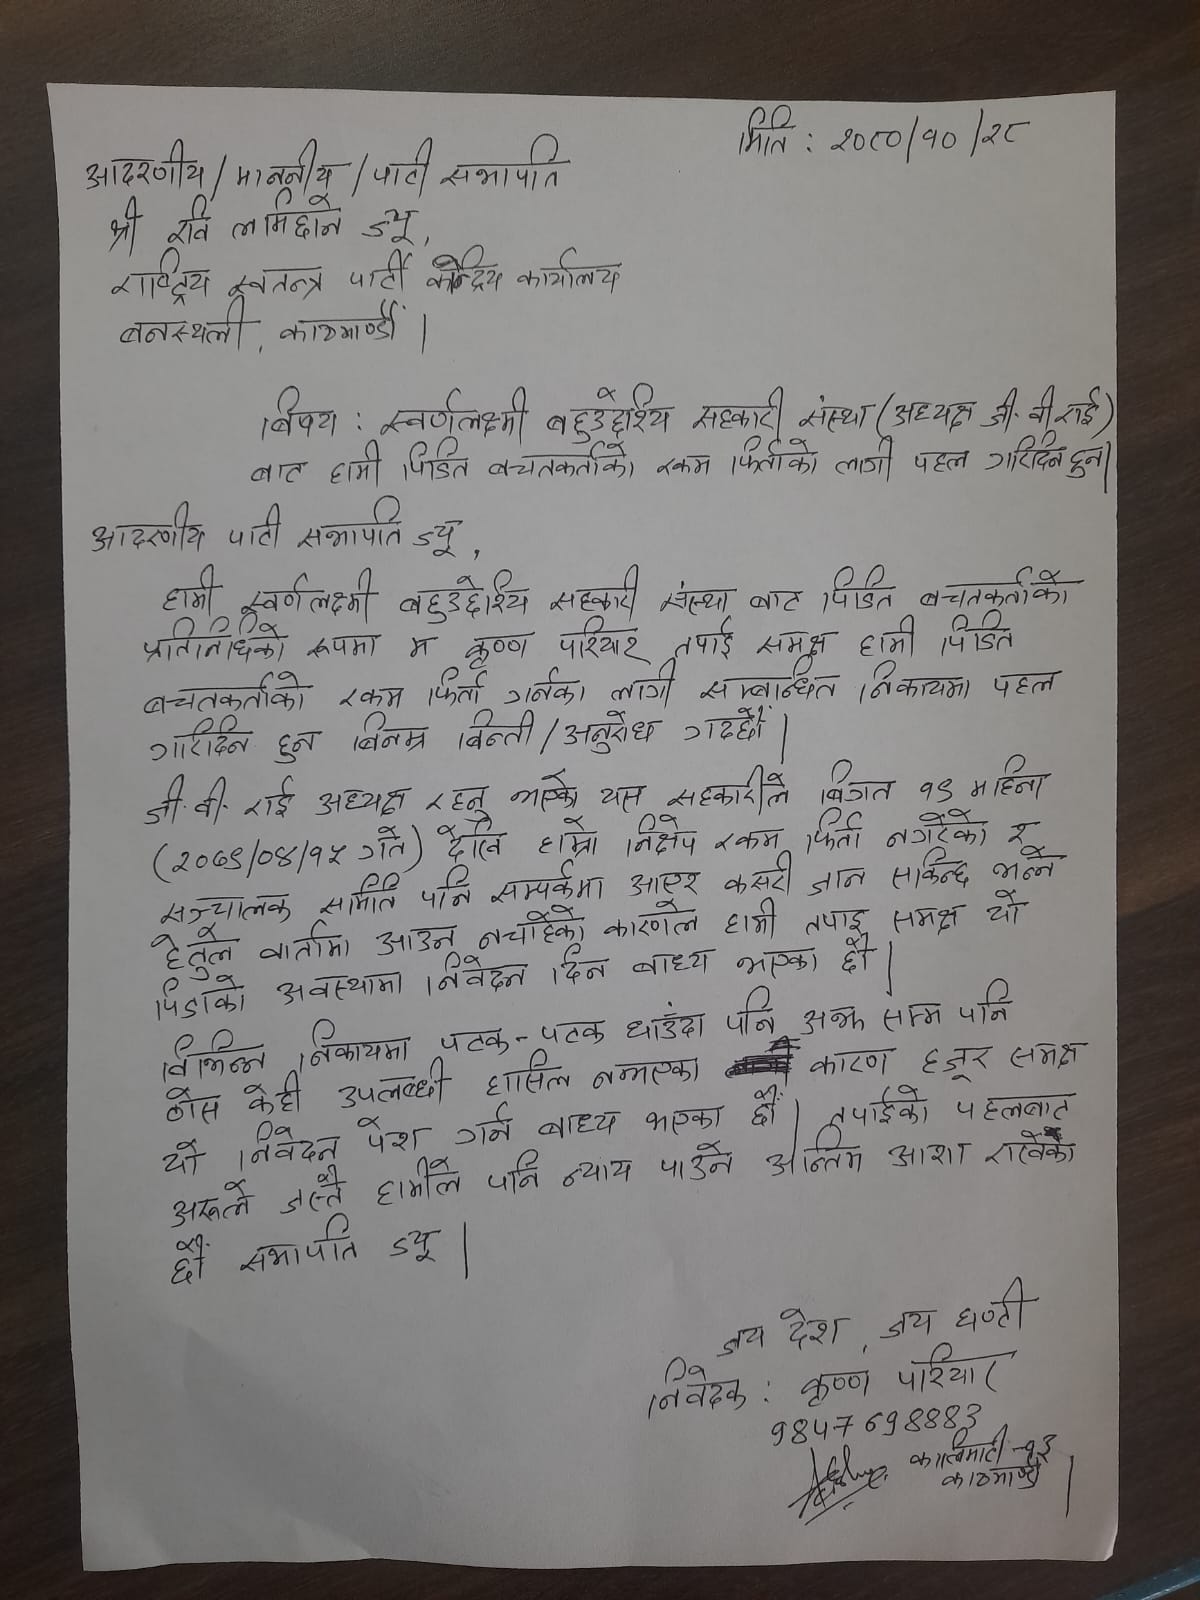 मिति : २०८०/१०/२८
आदरणीय/माननीय/पार्टी सभापति
श्री रवि लामिछाने ज्यू,
राष्ट्रिय स्वतन्त्र पार्टी केन्द्रिय कार्यालय
बनस्थली, काठमाण्डौं।
बिषय : स्वर्णलक्ष्मी बहुउद्देश्यि सहकारी संस्था (अध्यक्ष जी. बी राई)
बाट हामी पिडित बचतकर्ताको रकम फिर्ताको लागी पहल गरिदिन हुन।
आदरणीय पार्टी सभापति ज्यू,
हामी स्वर्णलक्ष्मी बहुउद्देश्यि सहकारी संस्था बाट पिडित बचतकर्ताको
प्रतिनिधिको रूपमा म कृष्ण परियार तपाई समक्ष हामी पिडित
बचतकर्ताको रकम फिर्ता गर्नका लागी सम्बान्धित निकायमा पहल
गरिदिन हुन बिनम्र बिन्ती/अनुरोध गर्दछौं।
जी. बी. राई अध्यक्ष रहनु भएको यस सहकारीले बिगत १९ महिना
(२०७९/०४/१५ गते) देखि हाम्रो निक्षेप रकम फिर्ता नगरेको र
सञ्चालक समिति पनि सम्पर्कमा आएर कसरी जान सकिन्छ भन्ने
हेतुले वार्तामा आउन नचाहेको कारणले हामी तपाइ समक्ष यो
पिडाको अवस्थामा निवेदन दिन बाध्य भएका छौं।
विभिन्न निकायमा पटक-पटक धाउँदा पनि अझ सम्म पनि
ठोस केही उपलब्धी हासिल नभएका कारण हजूर समक्ष
यो निवेदन पेश गर्न बाध्य भएका छौं। तपाईको पहलबाट
अरूले जस्तै हामीले पनि न्याय पाउने अन्तिम आशा राखेका
छौं सभापति ज्यू।
जय देश, जय घण्टी
निवेदक : कृष्ण परियार
9847698883
कालिमाटी -१३
काठमाण्डौ।